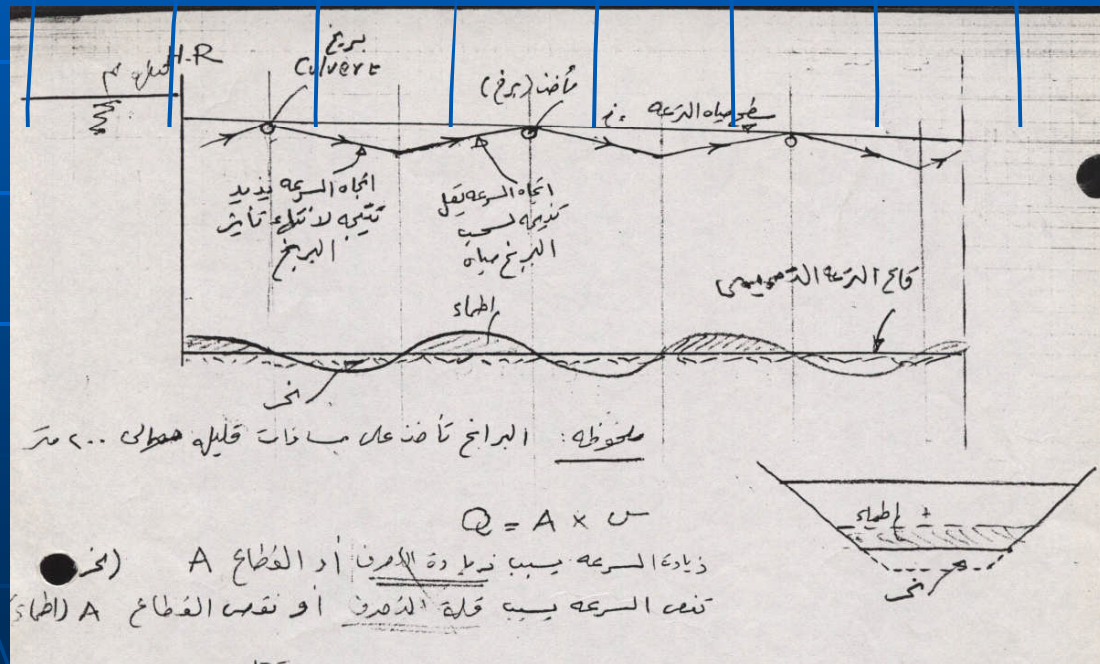 بربخ
Culvert
H.R
مأخذ (بربخ)
سطح مياه الترعه
اتجاه السرعه يزيد
نتيجه لانتهاء تأثير
البربخ
اتجاه السرعه يقل
نتيجه لسحب
البربخ مياه
قاع الترعه التصميمى
اطماء
نحر
ملحوظه: البرابخ تأخذ على مسافات قليله حوالى ٢٠٠ متر
Q = A × س
اطماء
زيادة السرعه يسبب زيادة التصرف أو القطاع A (نحر
نقص السرعه يسبب قلة التصرف أو نقص القطاع A (اطماء
نحر